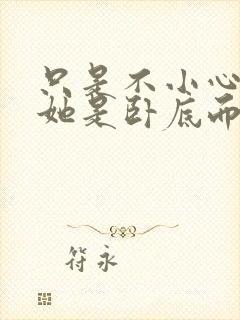 只是不小心
她是卧底而
符永